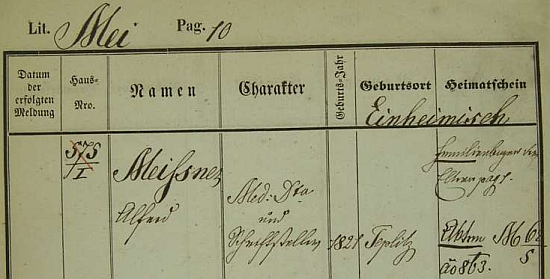 Lit. Mei Pag. 10
Datum der erfolgten Meldung
Haus-Nro.
Namen
Charakter
Geburts-Jahr
Geburtsort
Heimatschein
Einheimisch
575/I
Meissner
Alfred
Med: Dr
und
Schriftsteller
1821
Teplitz
Eltern pag 1.